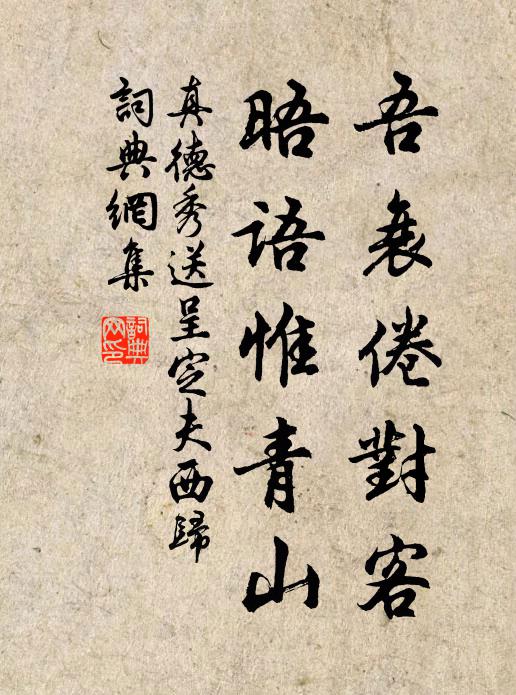 吾衰倦對客
晤語惟青山
真德秀送呈定夫西歸
詞典網集
詞典網印